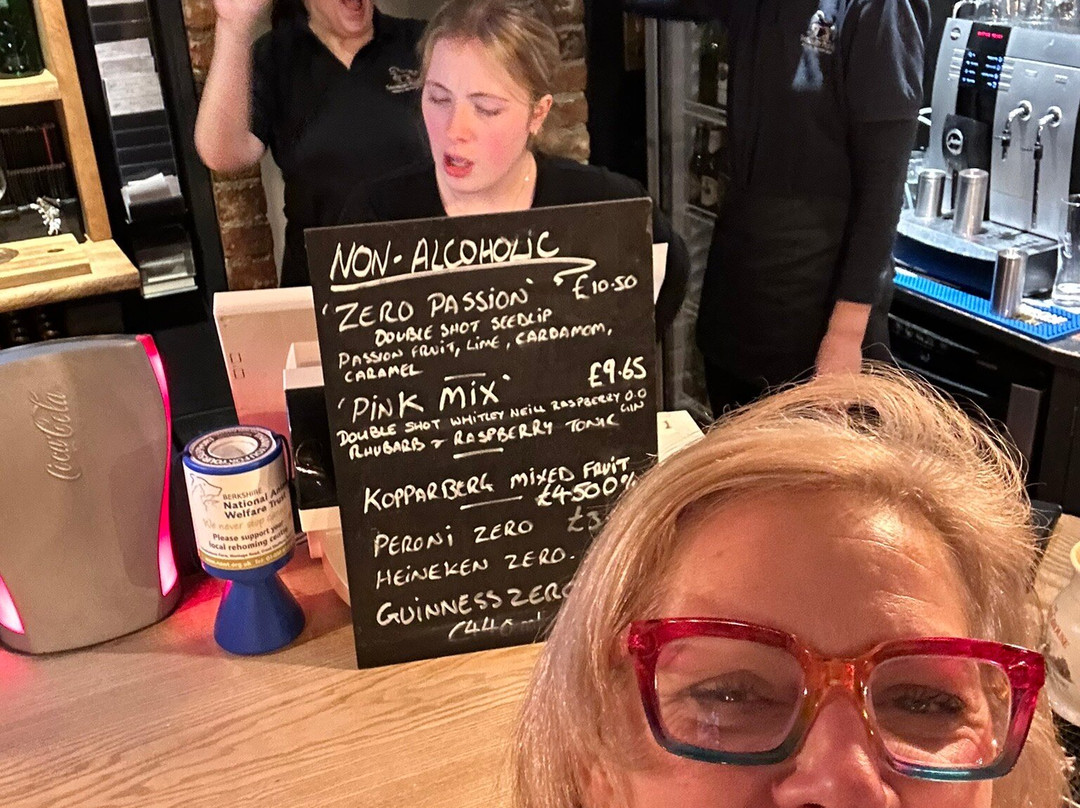 NON-ALCOHOLIC
'ZERO PASSION' £10.50
DOUBLE SHOT SEEDLIP
PASSION FRUIT, LIME, CARDAMOM,
CARAMEL
'PINK MIX' £9.65
DOUBLE SHOT WHITLEY NEILL RASPBERRY 0.0
GIN
RHUBARB & RASPBERRY TONIC
KOPPARBERG MIXED FRUIT
£4.50 0%
PERONI ZERO
HEINEKEN ZERO.
GUINNESS ZERO
(440
Coca-Cola
BERKSHIRE
National
Welfare Trust
We never stop
Please support your
local rehoming centre